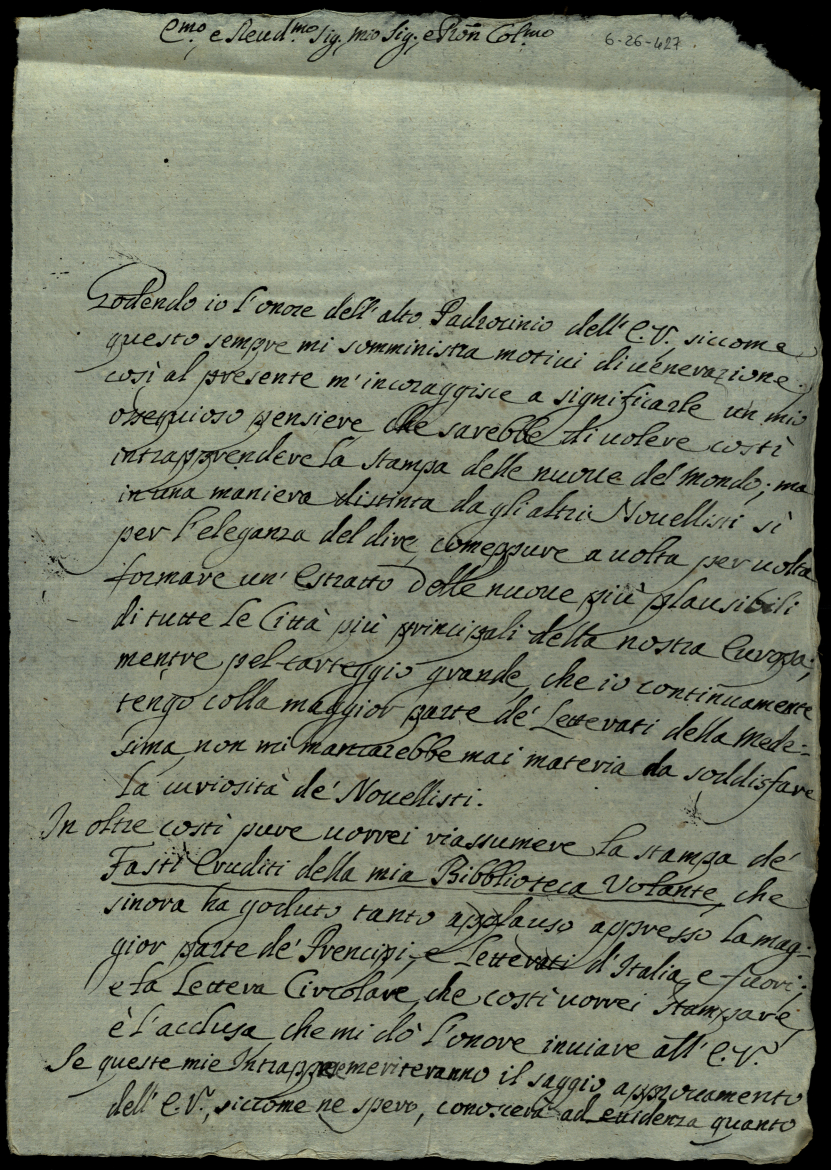 E.mo e Reud.mo Sig. mio Sig. e Pron Col.mo
6-26-427
Godendo io l'onore dell'alto Padrocinio dell'E.V. siccome
questo sempre mi somministra motiui di uenerazione,
così al presente m'incoraggisce a significarle un mio
ossequioso pensiere, che sarebbe di uolere costì
intrapprendere la stampa delle nuoue del mondo; ma
in una maniera distinta dagli altri Nouellisti sì
per l'eleganza del dire, comeppure a uolta per uolta
formare un'estratto delle nuoue più plausibili
di tutte le Città più principali della nostra Europa;
mentre pel carteggio grande, che io continuamente
tengo colla maggior parte de' Letterati della mede-
sima, non mi mancarebbe mai materia da soddisfare
la curiosità de' Nouellisti.
In oltre costì pure uorrei riassumere la stampa de'
Fasti Eruditi della mia Bibblioteca Volante, che
sinora ha goduto tanto applauso appresso la mag-
gior parte de' Prencipi, e Letterati d'Italia, e fuori;
e la Lettera Circolare, che costì uorrei stampare,
è l'acclusa che mi dò l'onore inuiare all'E.V.
Se queste mie Intrapprese meriteranno il saggio approuamento
dell'E.V., siccome ne spero, conoscerà ad euidenza quanto